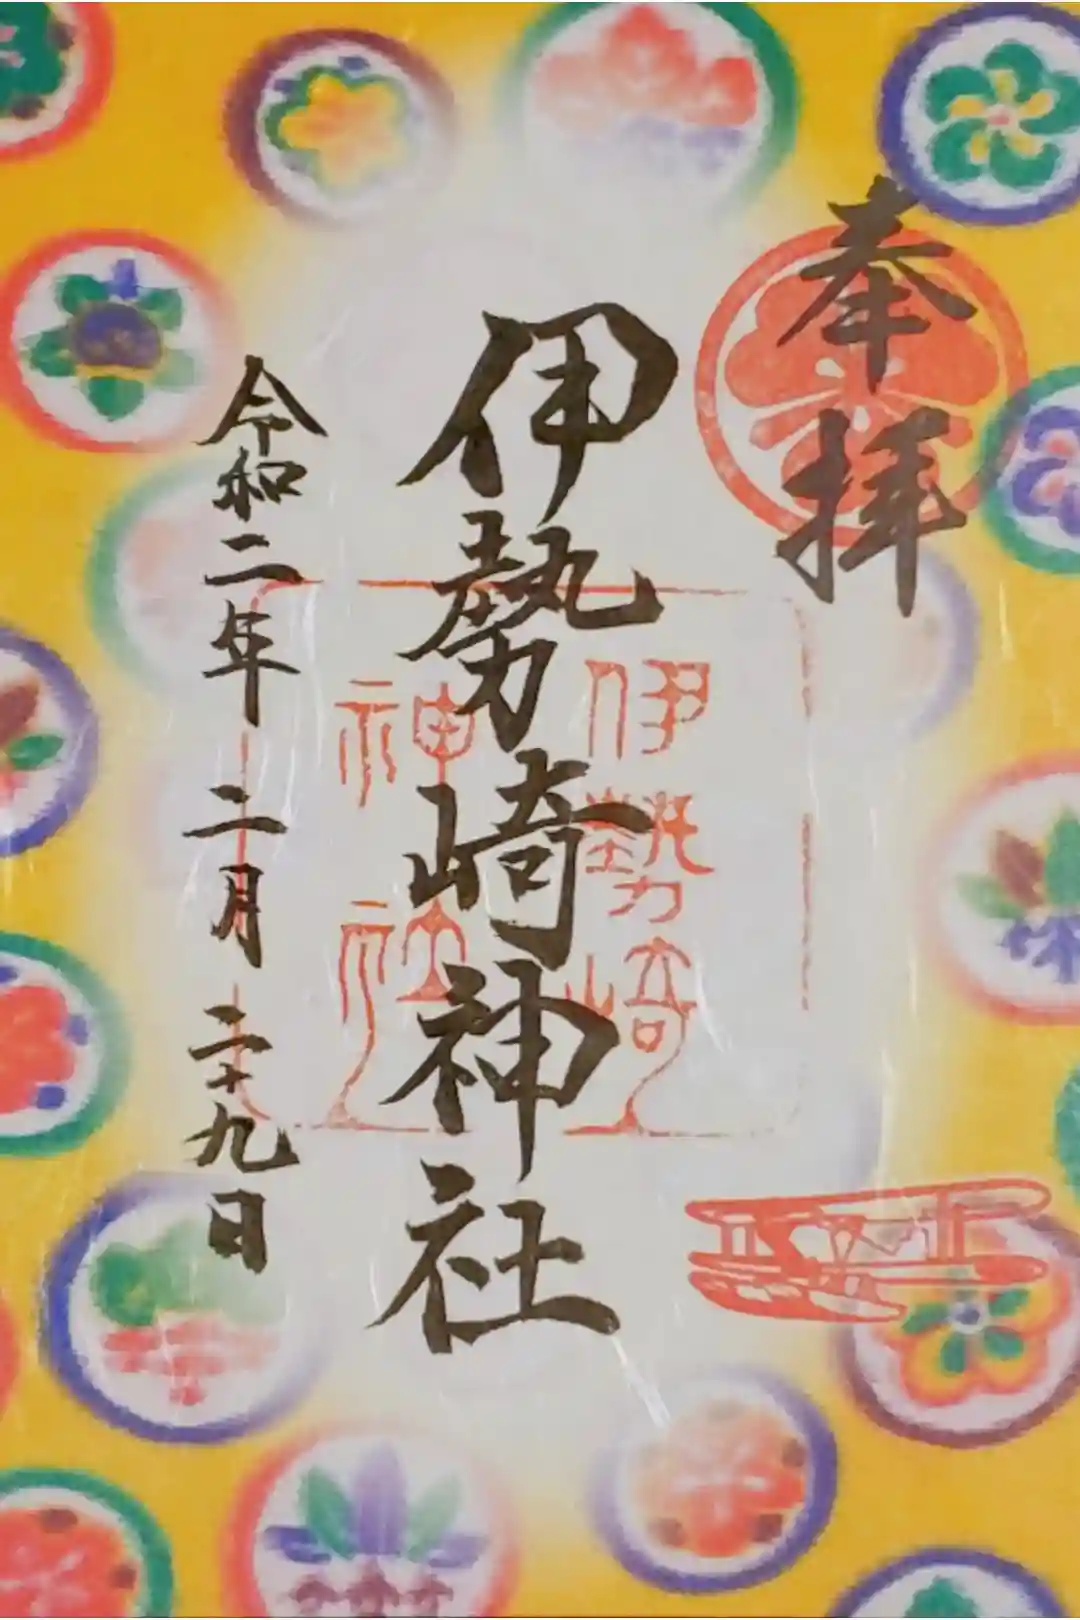 奉拝
伊勢崎神社
伊勢崎
神社
令和二年 二月 二十九日